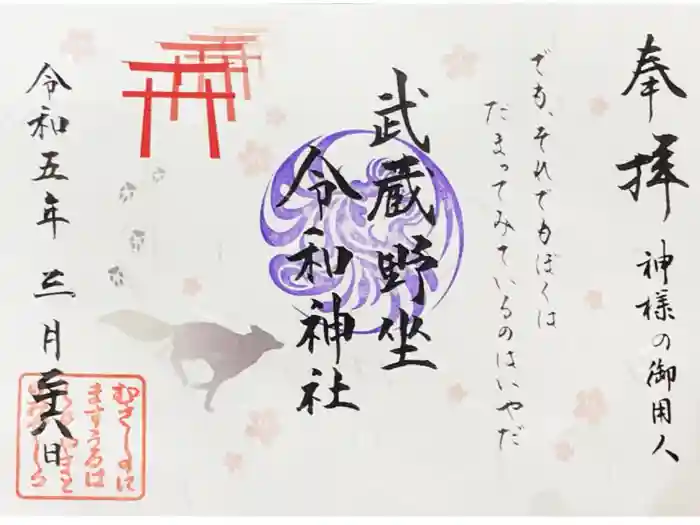 奉拝
神様の御用人
でも、それでもぼくは
だまってみているのはいやだ
武蔵野坐
令和神社
令和五年 三月二十八日
むさしのに
ますうるは